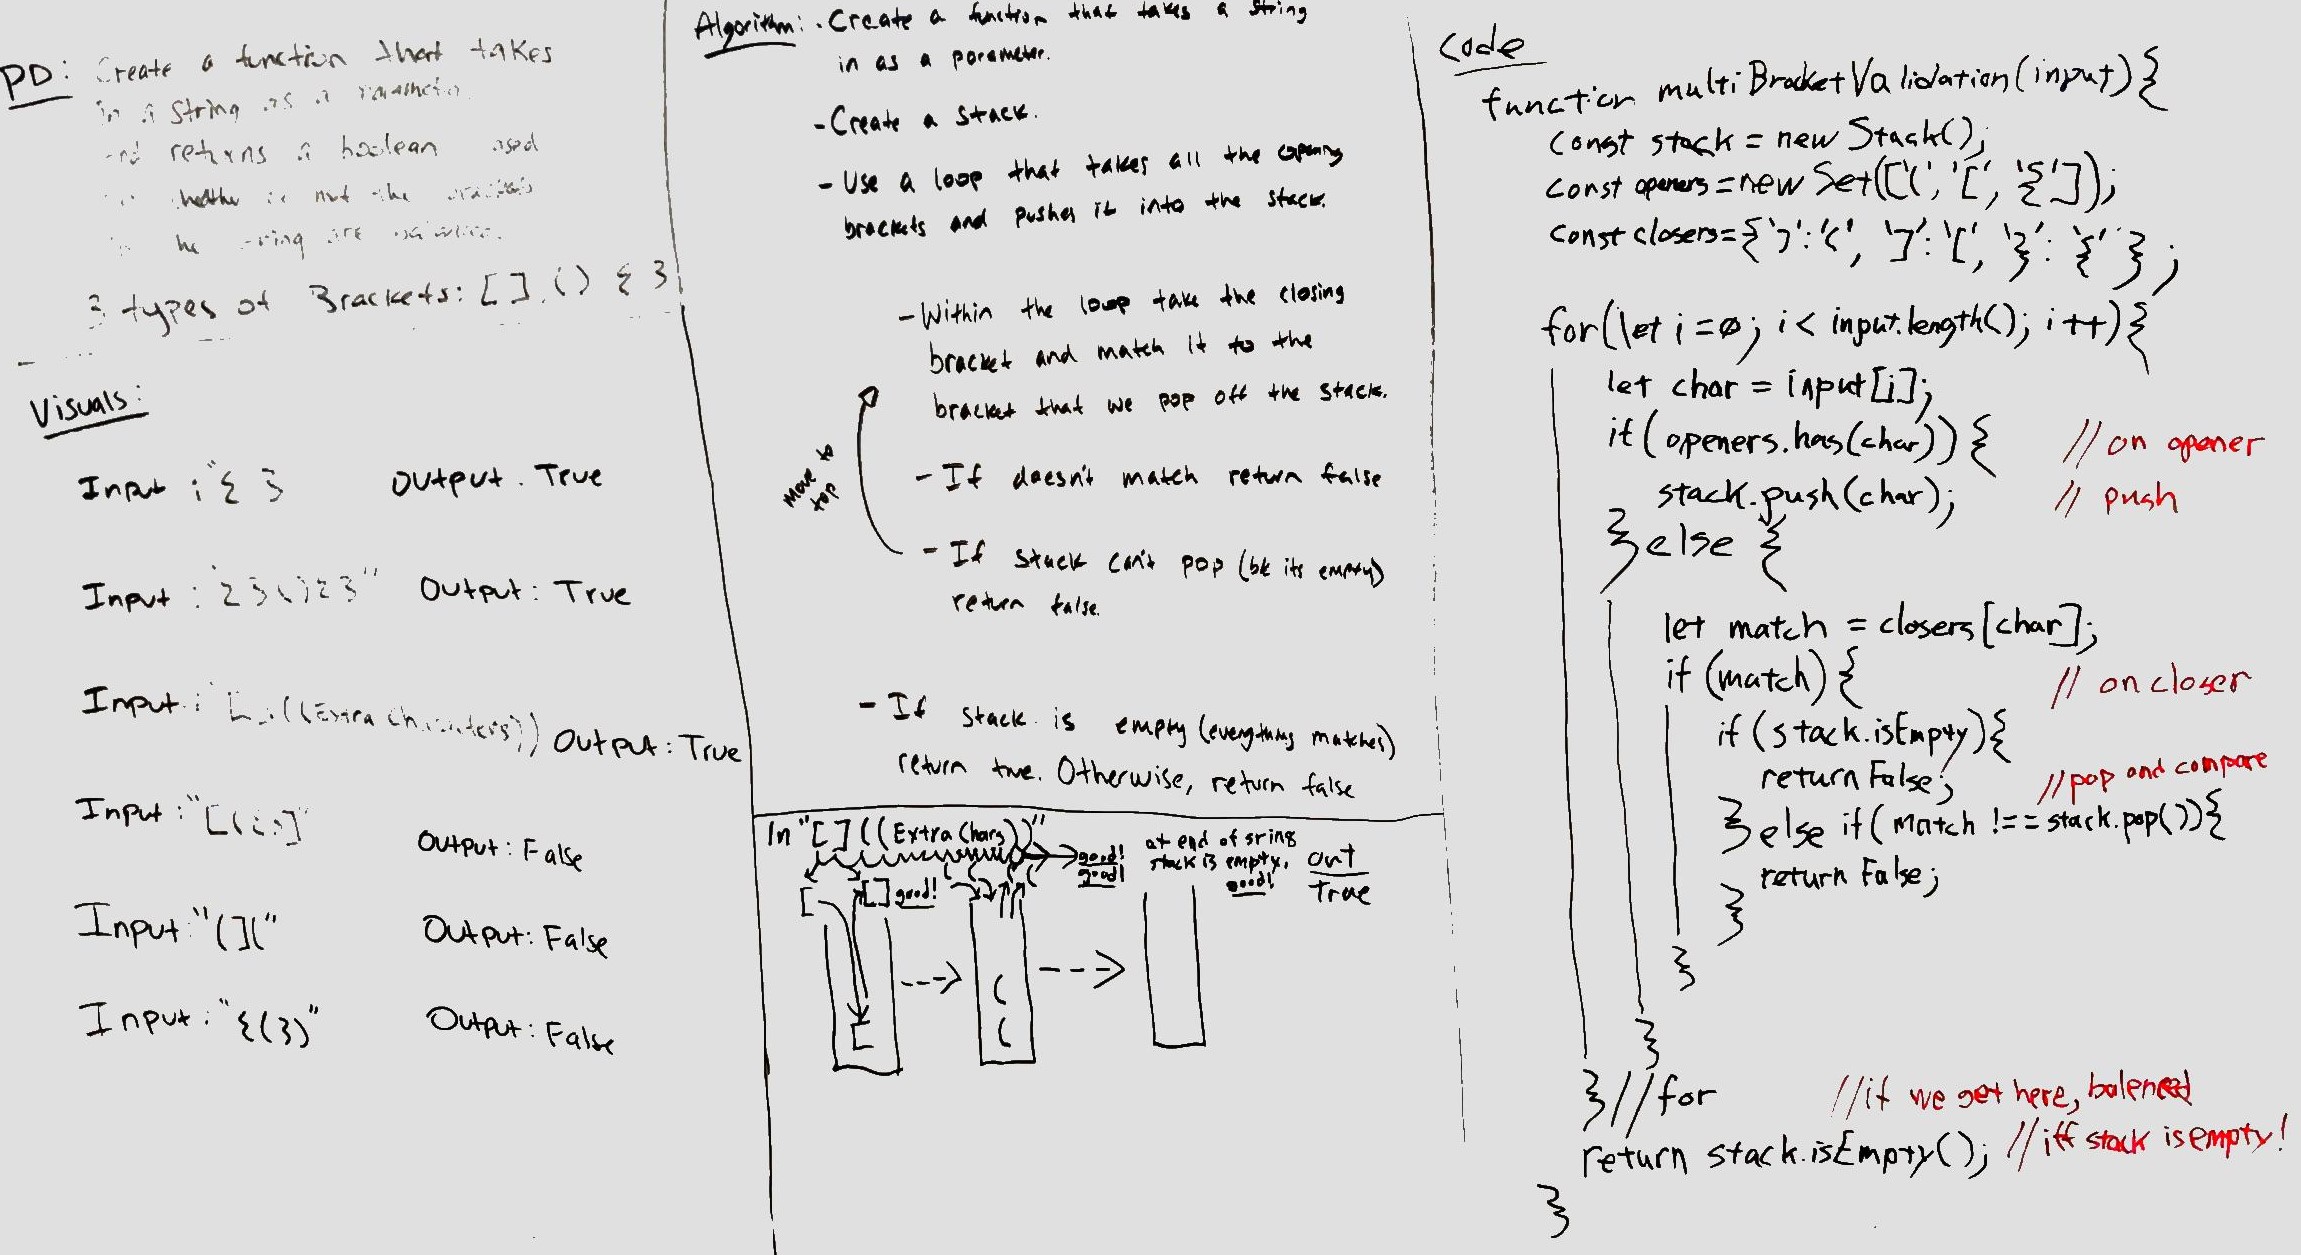 PD: Create a function that takes
in a string as a
and returns a boolean
whether or not the
the string are
3 types of Brackets: [ ], ( ) { }
Visuals:
Input : "{ } Output. True
Input : "{}(){}" Output: True
Input: [ ]((Extra Characters)) Output: True
Input: Output: False
Input: "(](" Output: False
Input: "{(})" Output: False
Algorithm: - Create a function that takes a string
in as a parameter.
- Create a stack.
- Use a loop that takes all the opening
brackets and pushes it into the stack.
- Within the loop take the closing
bracket and match it to the
bracket that we pop off the stack.
- If doesn't match return false
Move to
top
- If stack can't pop (bk its empty)
return false.
- If stack is empty (everything matches)
return true. Otherwise, return false
In "[]((Extra Chars))"
good!
good!
at end of sring
stack is empty,
good!
out
True
[ [] good!
[ ( (
Code
function multiBracketValidation(input){
const stack = new Stack();
const openers = new Set(['(', '[', '{']);
const closers={')':'(', ']':'[', '}':'{'};
for(let i=0; i< input.length(); i++){
let char = input[i];
if(openers.has(char)){ // on opener
stack.push(char); // push
} else {
let match = closers[char];
if (match) { // on closer
if (stack.isEmpty){
return False; //pop and compare
} else if( match !== stack.pop()){
return False;
}
}
}
} //for //if we get here, balenced
return stack.isEmpty(); //iff stack is empty!
}